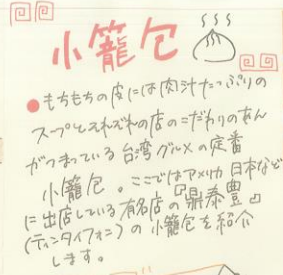 小籠包
●もちもちの皮には肉汁たっぷりの
スープとそれぞれの店のこだわりのあん
がつまっている台湾グルメの定番
小籠包。ここではアメリカ日本など
に出店している有名店の『鼎泰豊』
(ディンタイフォン)の小籠包を紹介
します。